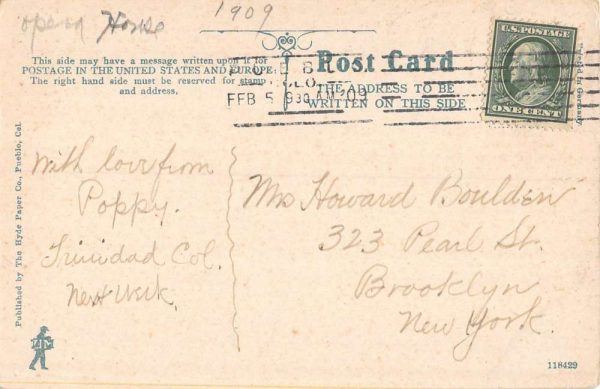 Opera House
1909
This side may have a message written upon it for
POSTAGE IN THE UNITED STATES AND EUROPE:
The right hand side must be reserved for stamp
and address.
Post Card
THE ADDRESS TO BE
WRITTEN ON THIS SIDE
FEB 5 9 30 AM '09
U.S. POSTAGE
ONE CENT
With love from
Poppy.
Trinidad Col.
Next week.
Mrs Howard Boulden
323 Pearl St.
Brooklyn
New York.
Published by The Hyde Paper Co., Pueblo, Col.
118429